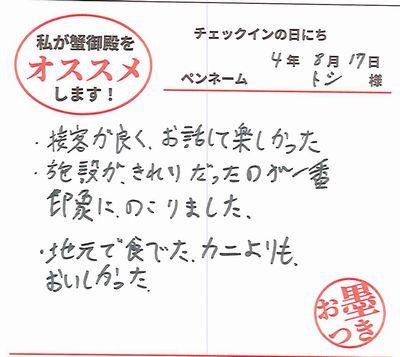 私が蟹御殿を
オススメ
します！
チェックインの日にち
4年 8月 17日
ペンネーム トシ 様
・接客が良く、お話して楽しかった
・施設が、きれいだったのが一番
印象に、のこりました、
・地元で食べた、カニよりも、
おいしかった、
お墨つき